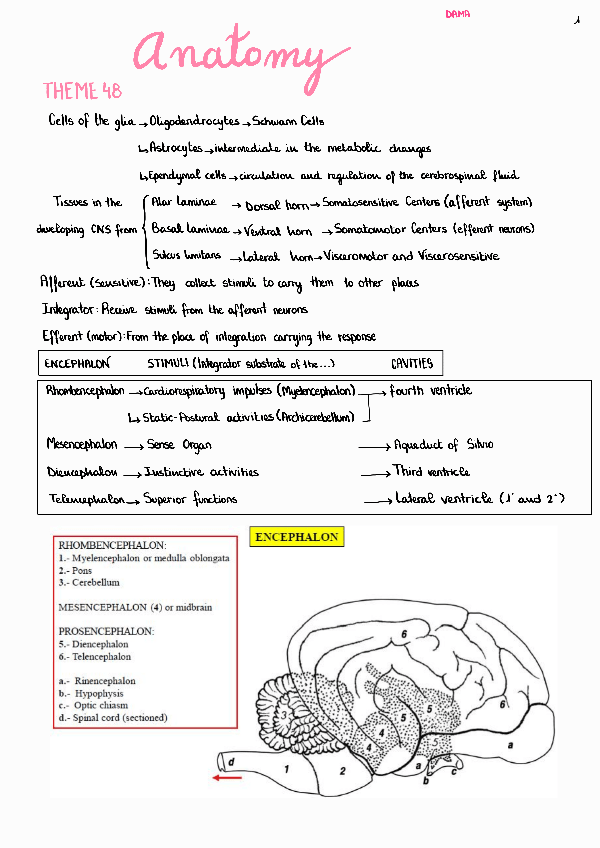 DAMA
1
Anatomy
THEME 48
Cells of the glia → Oligodendrocytes → Schwann Cells
↳ Astrocytes → intermediate in the metabolic changes
↳ Ependymal cells → circulation and regulation of the cerebrospinal fluid
Tissues in the developing CNS from
Alar laminae → Dorsal horn → Somatosensitive Centers (afferent system)
Basal laminae → Ventral horn → Somatomotor Centers (efferent neurons)
Sulcus limitans → Lateral horn → Visceromotor and Viscerosensitive
Afferent (sensitive): They collect stimuli to carry them to other places
Integrator: Receive stimuli from the afferent neurons
Efferent (motor): From the place of integration carrying the response
ENCEPHALON STIMULI (Integrator substrate of the...) CAVITIES
Rhombencephalon → Cardiorespiratory impulses (Myelencephalon) → fourth ventricle
↳ Static-Postural activities (Archicerebellum)
Mesencephalon → Sense Organ → Aqueduct of Silvio
Diencephalon → Instinctive activities → Third ventricle
Telencephalon → Superior functions → Lateral ventricle (1º and 2º)
ENCEPHALON
RHOMBENCEPHALON:
1.- Myelencephalon or medulla oblongata
2.- Pons
3.- Cerebellum
MESENCEPHALON (4) or midbrain
PROSENCEPHALON:
5.- Diencephalon
6.- Telencephalon
a.- Rinencephalon
b.- Hypophysis
c.- Optic chiasm
d.- Spinal cord (sectioned)
6
5
5
3
6
4
5
4
a
d
1
2
a
b
c